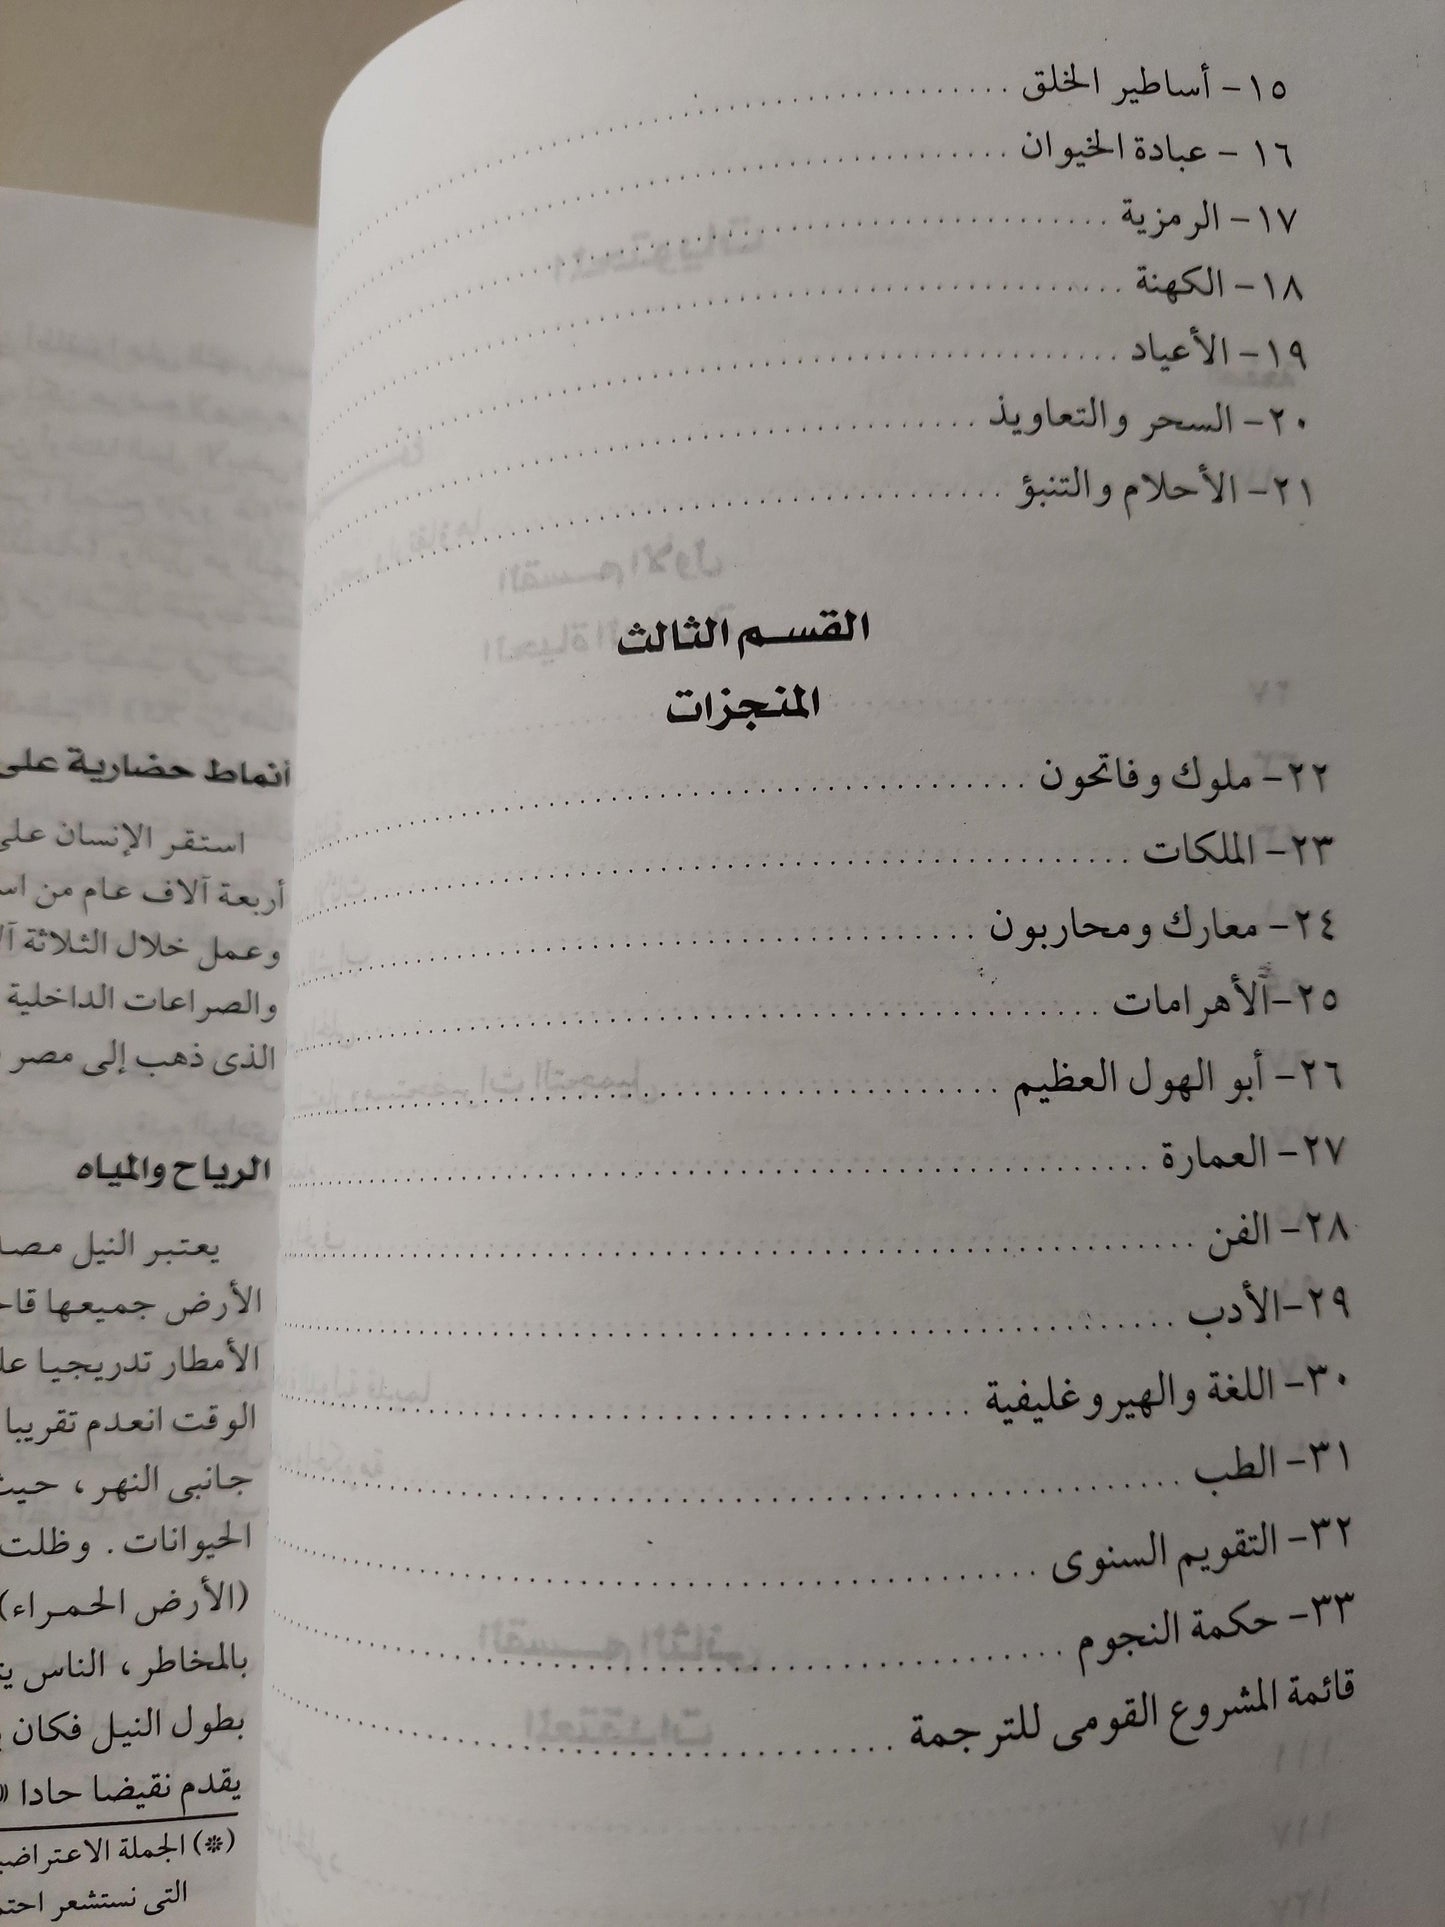 ١٥- أساطير الخلق
١٦- عبادة الخيوان
١٧- الرمزية
١٨- الكهنة
١٩- الأعياد
٢٠- السحر والتعاويذ
٢١- الأحلام والتنبؤ
القسم الثالث
المنجزات
٢٢- ملوك وفاتحون
٢٣- الملكات
٢٤- معارك ومحاربون
٢٥- الأهرامات
٢٦- أبو الهول العظيم
٢٧- العمارة
٢٨- الفن
٢٩- الأدب
٣٠- اللغة والهيروغليفية
٣١- الطب
٣٢- التقويم السنوى
٣٣- حكمة النجوم
قائمة المشروع القومى للترجمة
أنماط حضارية على
استقر الإنسان على
أربعة آلاف عام من
وعمل خلال الثلاثة
والصراعات الداخلية
الذى ذهب إلى مصر
الرياح والمياه
يعتبر النيل
الأرض جميعها
الأمطار تدريجيا
الوقت انعدم تقريبا
جانبى النهر ،
الحيوانات . وظلت
(الأرض الحمراء)
بالمخاطر ، الناس
بطول النيل فكان
يقدم نقيضا حادا
(*) الجملة
التى نستشعر